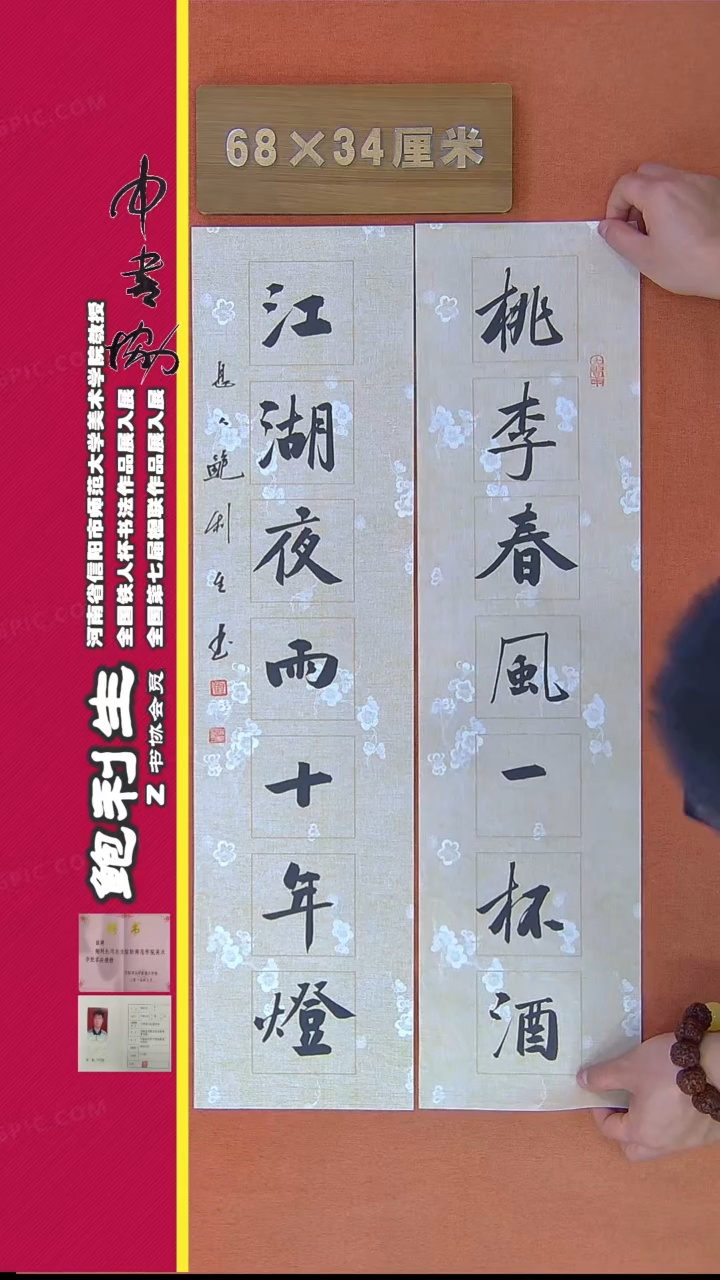 68×34厘米
桃李春風一杯酒
江湖夜雨十年燈
鮑利生书
中书协
河南省信阳市师范大学美术学院教授
全国铁人杯书法作品展入展
全国第七届楹联作品展入展
鲍利生
Z书协会员